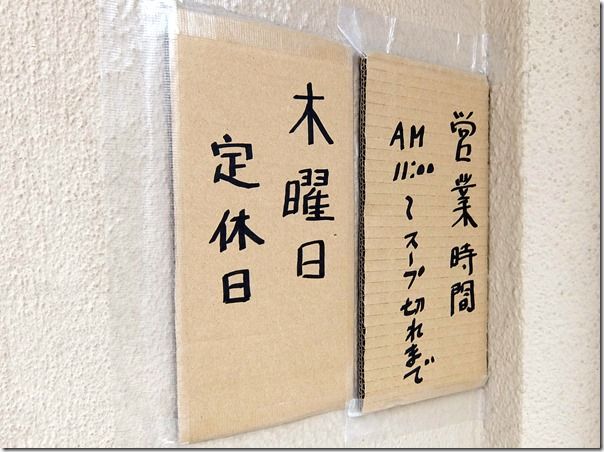 営業時間
AM
11:00
〜スープ切れまで
木曜日
定休日